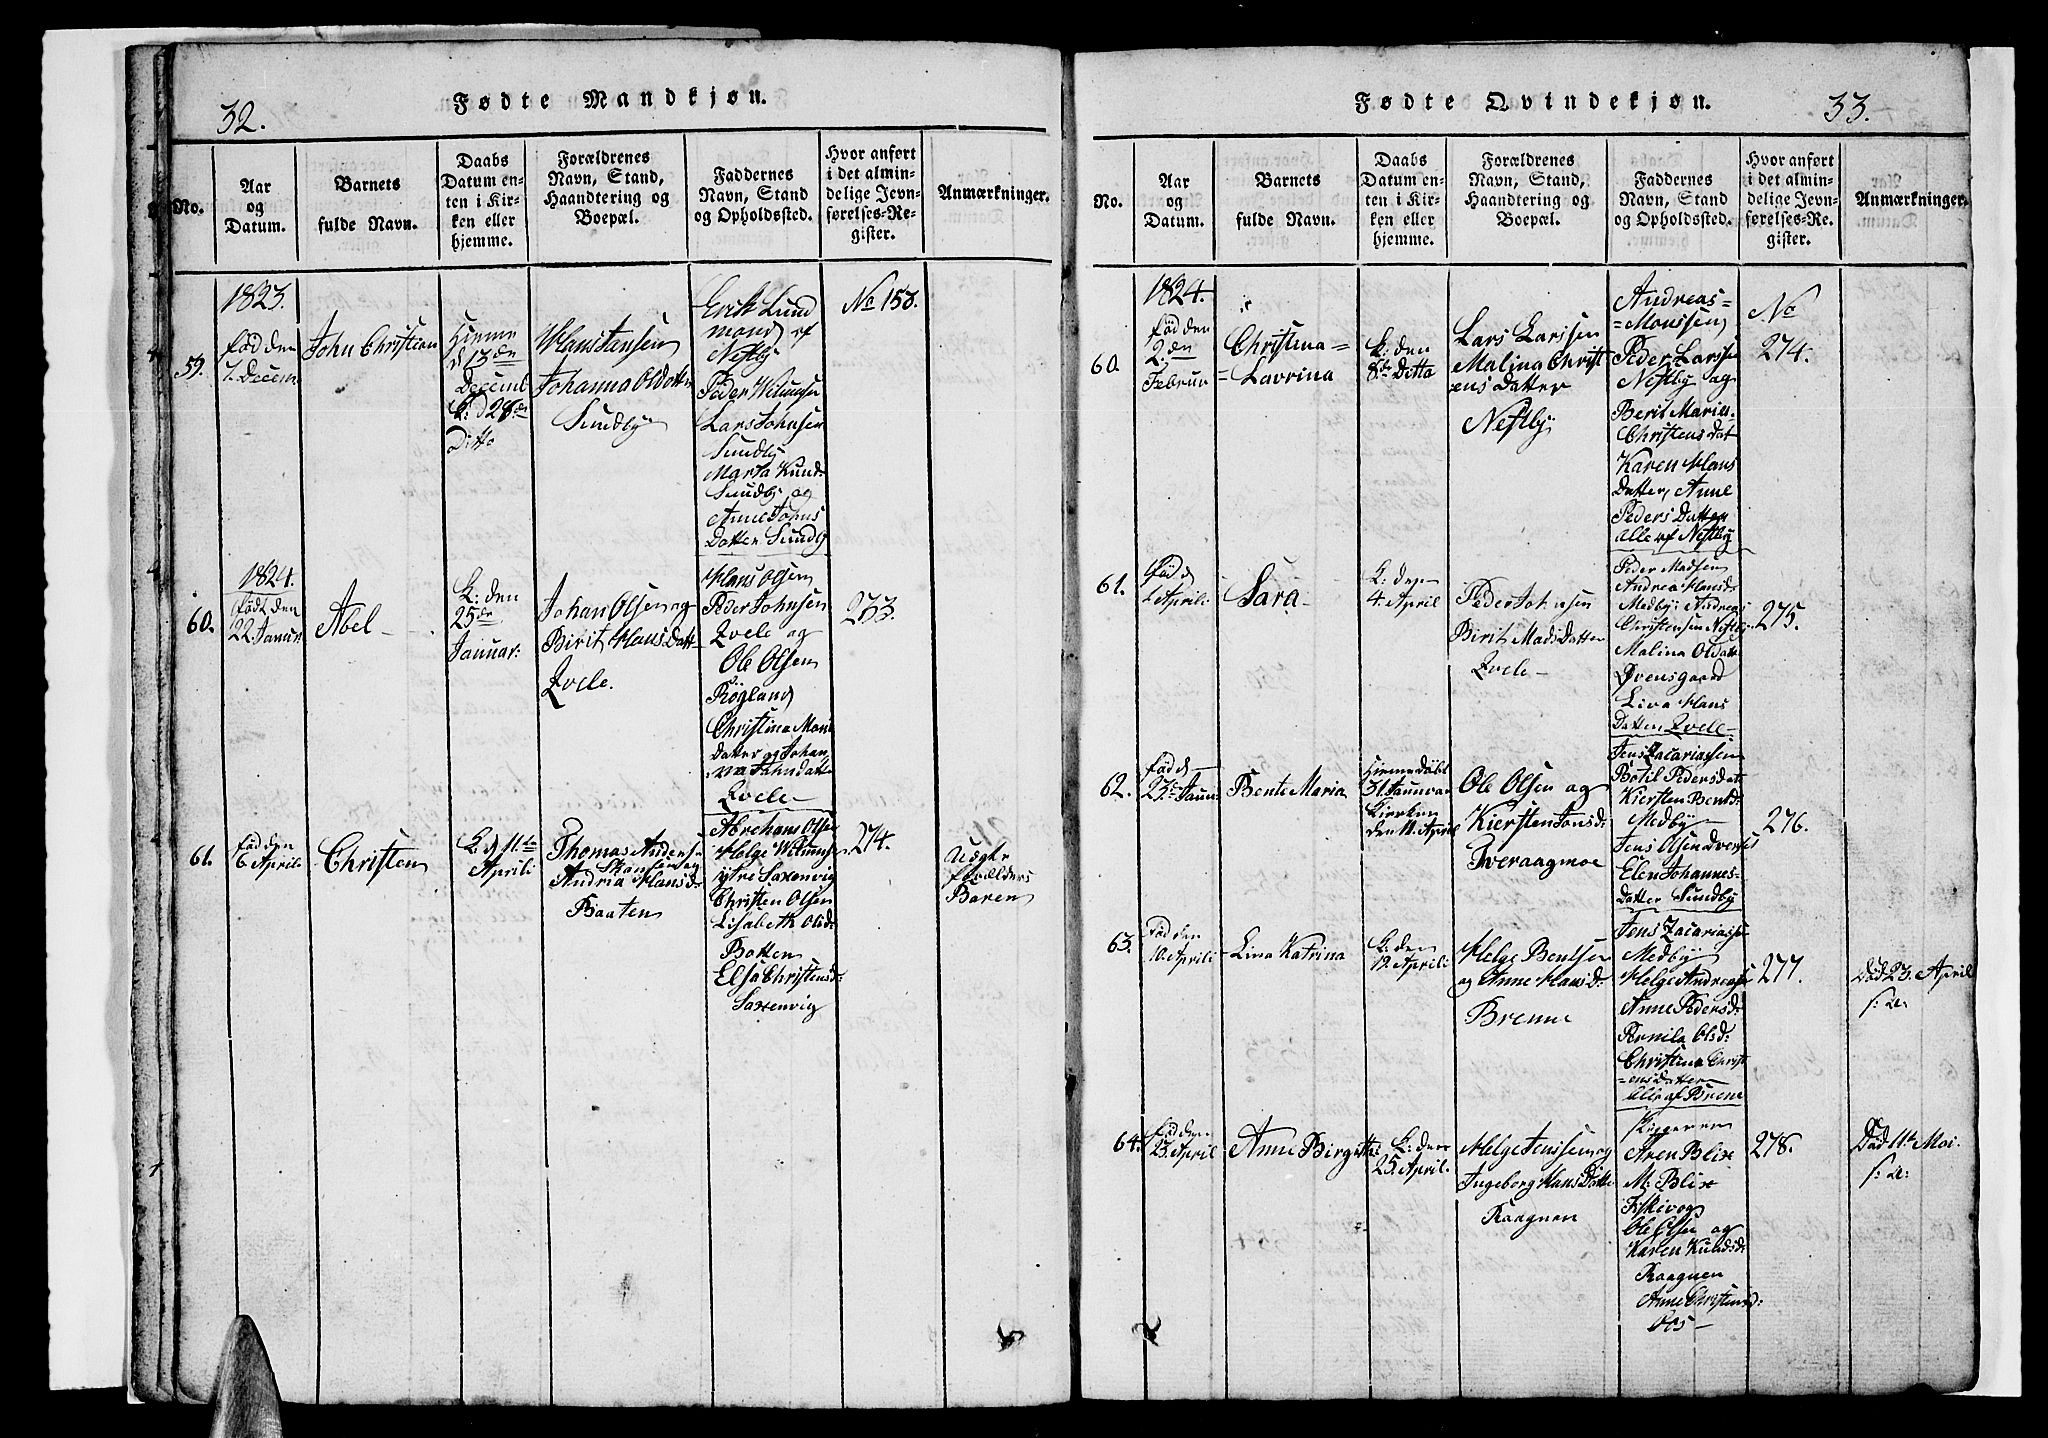 32.
Fødte Mandkjøn.
No.
Aar
og
Datum.
Barnets
fulde Navn.
Daabs
Datum en-
ten i Kir-
ken eller
hjemme.
Forældrenes
Navn, Stand,
Haandtering og
Boepæl.
Faddernes
Navn, Stand
og Opholdssted.
Hvor anført
i det almin-
delige Jevn-
førelses-Re-
gister.
Anmærkninger.
59.
1823.
fød den
7. Decem
John Christian
Hieme
d 13de
Decemb
K: d 28de
Ditto
Hans Jansen
Johanna Olsdatter
Sundby
Erick Lund
mand af
Nestby
Peder Wilumsen
Lars Johnsen
Sundby
Marta Knuds
Sundby og
Anne Johns
Datter Sundby
No 158.
60.
1824.
født den
22. Januar
Abel
K: den
25de
Januar:
Johan Olsen og
Birit Hans Datt
Qvele.
Hans Olsen
Peder Johnsen
Qvele og
Ole Olsen
Røgland
Christina Mons
datter og Johan
na Johndatt
Qvele
273.
61.
fød den
6 April
Christen
K. d 11te
Aprili
Thomas Anders
Andria Hansd
Baaten
Abreham Olsen
Helge Wilumsen
ytre Saxenvig
Christen Olsen
Lisabeth Olsd:
Botten
Elsa Christensd:
Saxenvig
274.
Uægte
Forælders
Baren
33.
Fødte Qvindekjøn.
No.
Aar
og
Datum.
Barnets
fulde Navn.
Daabs
Datum en-
ten i Kir-
ken eller
hjemme.
Forældrenes
Navn, Stand,
Haandtering og
Boepæl.
Faddernes
Navn, Stand
og Opholdssted.
Hvor anført
i det almin-
delige Jevn-
førelses-Re-
gister.
Anmærkninger.
60.
1824.
fød den
2den
Februar
Christina
=Lavrina
K: den
8de Ditto
Lars Larssen
Malina Christ
ens Datter
Nestby
Andreas
=Monssen
Peder Larssen
Nestby og
Berit Maria
Christens Dat
Karen Hans
Datter, Anne
Peders Datter
alle af Nestby
No
274.
61.
fød d
1 April:
Sara
K: den
4. April
Peder Johnsen
Birit Mads Datter
Qvele
Peder Madsen
Andrea Hansd:
Medby Andreas
Christensen Nestby
Malina Olsdatt
Øvensgaard
Lina Hans
Datter Qvele
275.
62.
fød d
23de Janu
Bente Maria
Hieme Døbt
31. Januar
Kirken
den 11 April
Ole Olsen og
Kiersten Jonsd:
Tveraagmoe
Jens Zacariassen
Botil Pedersdat
Kiersten Bentd:
Medby
Jens Olsen
Elen Johannes-
Datter Sundby
276.
63.
fød den
10. Aprili
Lina Katrina
K: den
19. Aprili
Helge Bentsen
og Anne Hansd:
Brenne
Jens Zacariassen
Medby
Helge Andreasen
Anne Pedersd:
Pernila Olsd:
Christina Christ
=ensdatter
alle af Brenne
277.
Død 23. April
s: a:
64.
fød den
23 April
Anne Birgitte
K: den
25. April.
Helge Jenssen og
Ingeborg Hans Datte
Kaagnen
Skipperen
Aren Blix
M: Blix
Ole Olsen og
Karen Knudsd:
Kaagnen
Anne Christensd:
Oos
278.
Død 11te Mai.
s: a: